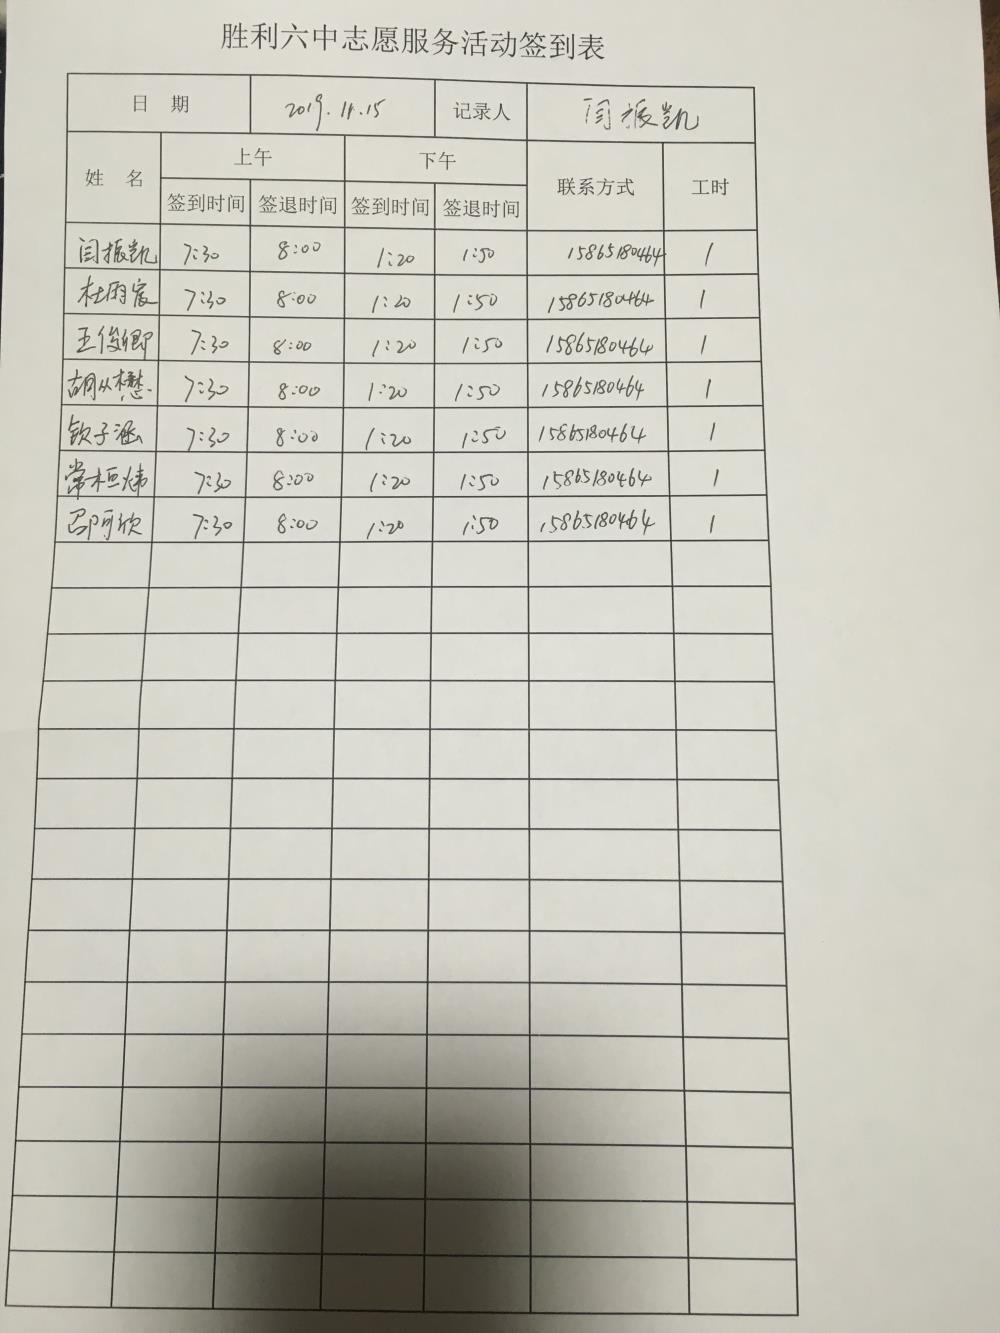 胜利六中志愿服务活动签到表
日 期 2019.11.15 记录人 闫振凯
姓 名 上午 下午 联系方式 工时
签到时间 签退时间 签到时间 签退时间
闫振凯 7:30 8:00 1:20 1:50 15865180464 1
杜雨宸 7:30 8:00 1:20 1:50 15865180464 1
王俊卿 7:30 8:00 1:20 1:50 15865180464 1
胡从懋 7:30 8:00 1:20 1:50 15865180464 1
钦子涵 7:30 8:00 1:20 1:50 15865180464 1
常桓炜 7:30 8:00 1:20 1:50 15865180464 1
邵可欣 7:30 8:00 1:20 1:50 15865180464 1